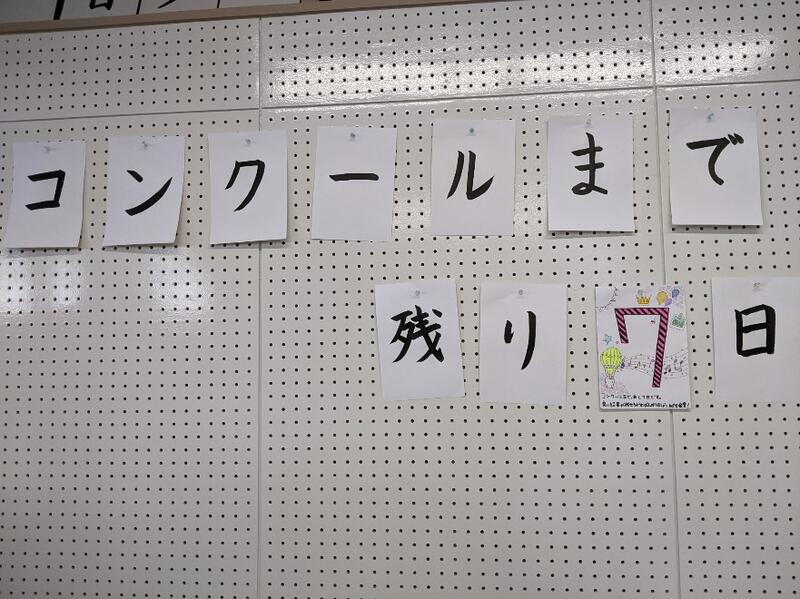 コンクールまで
残り7日
コンクールまで、あと7日です。